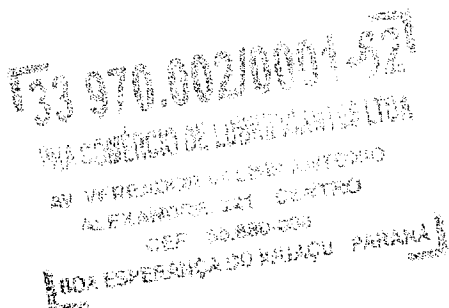 33 970.002/0001-52
COMÉRCIO DE LUBRIFICANTES LTDA
AV VEREADOR ANTONIO
ALEXANDRE 221 CENTRO
CEP
BOA ESPERANÇA DO IGUAÇU PARANÁ